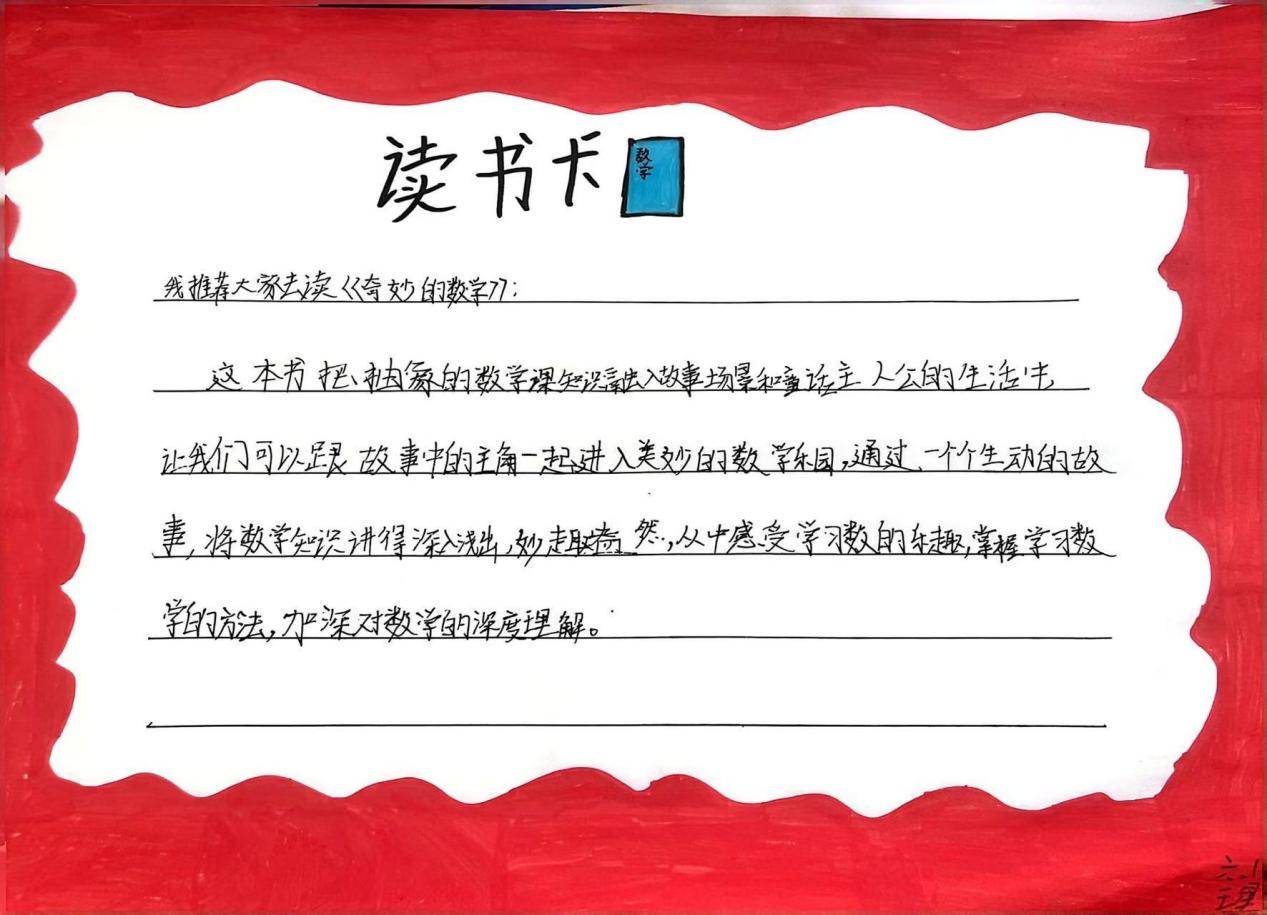 读书卡
数学
我推荐大家去读《奇妙的数学》:
这本书把抽象的数学课知识融入故事场景和童话主人公的生活中
让我们可以跟故事中的主角一起进入美妙的数学乐园,通过一个个生动的故
事,将数学知识讲得深入浅出,妙趣盎然,从中感受学习数的乐趣,掌握学习数
学的方法,加深对数学的深度理解。
六.1